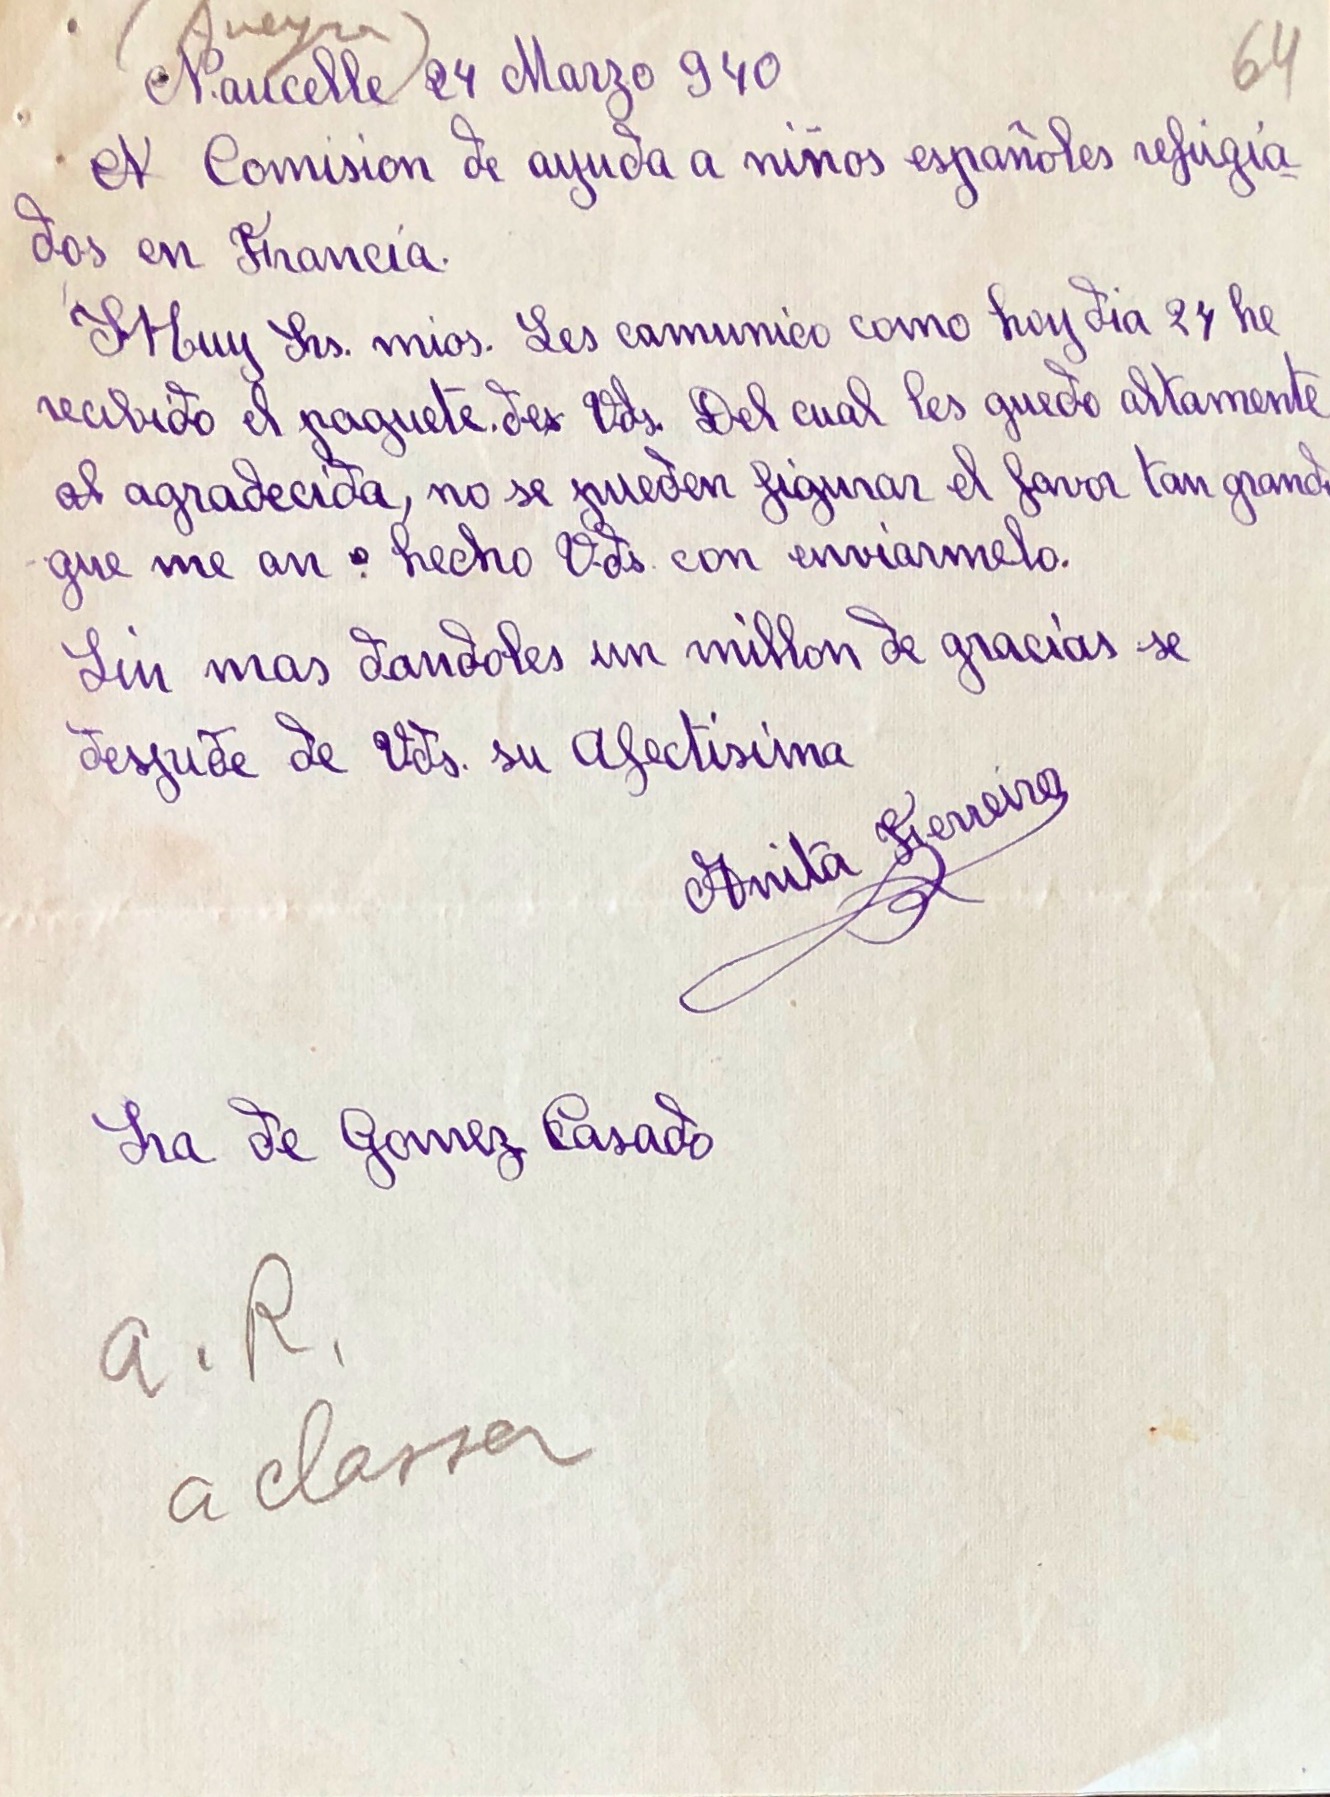 (Aveyron)
64
Naucelle 24 Marzo 940
A Comision de ayuda a niños españoles refugia-
dos en Francia.
Muy Srs. mios. Les comunico como hoy dia 24 he
recibido el paquete. de Vds. Del cual les quedo altamente
agradecida, no se pueden figurar el favor tan grande
que me an hecho Vds. con enviarmelo.
Sin mas dandoles un millon de gracias se
despide de Vds. su afectisima
Anita Ferreiro
Sra de Gomez Casado
a. R.
a classer